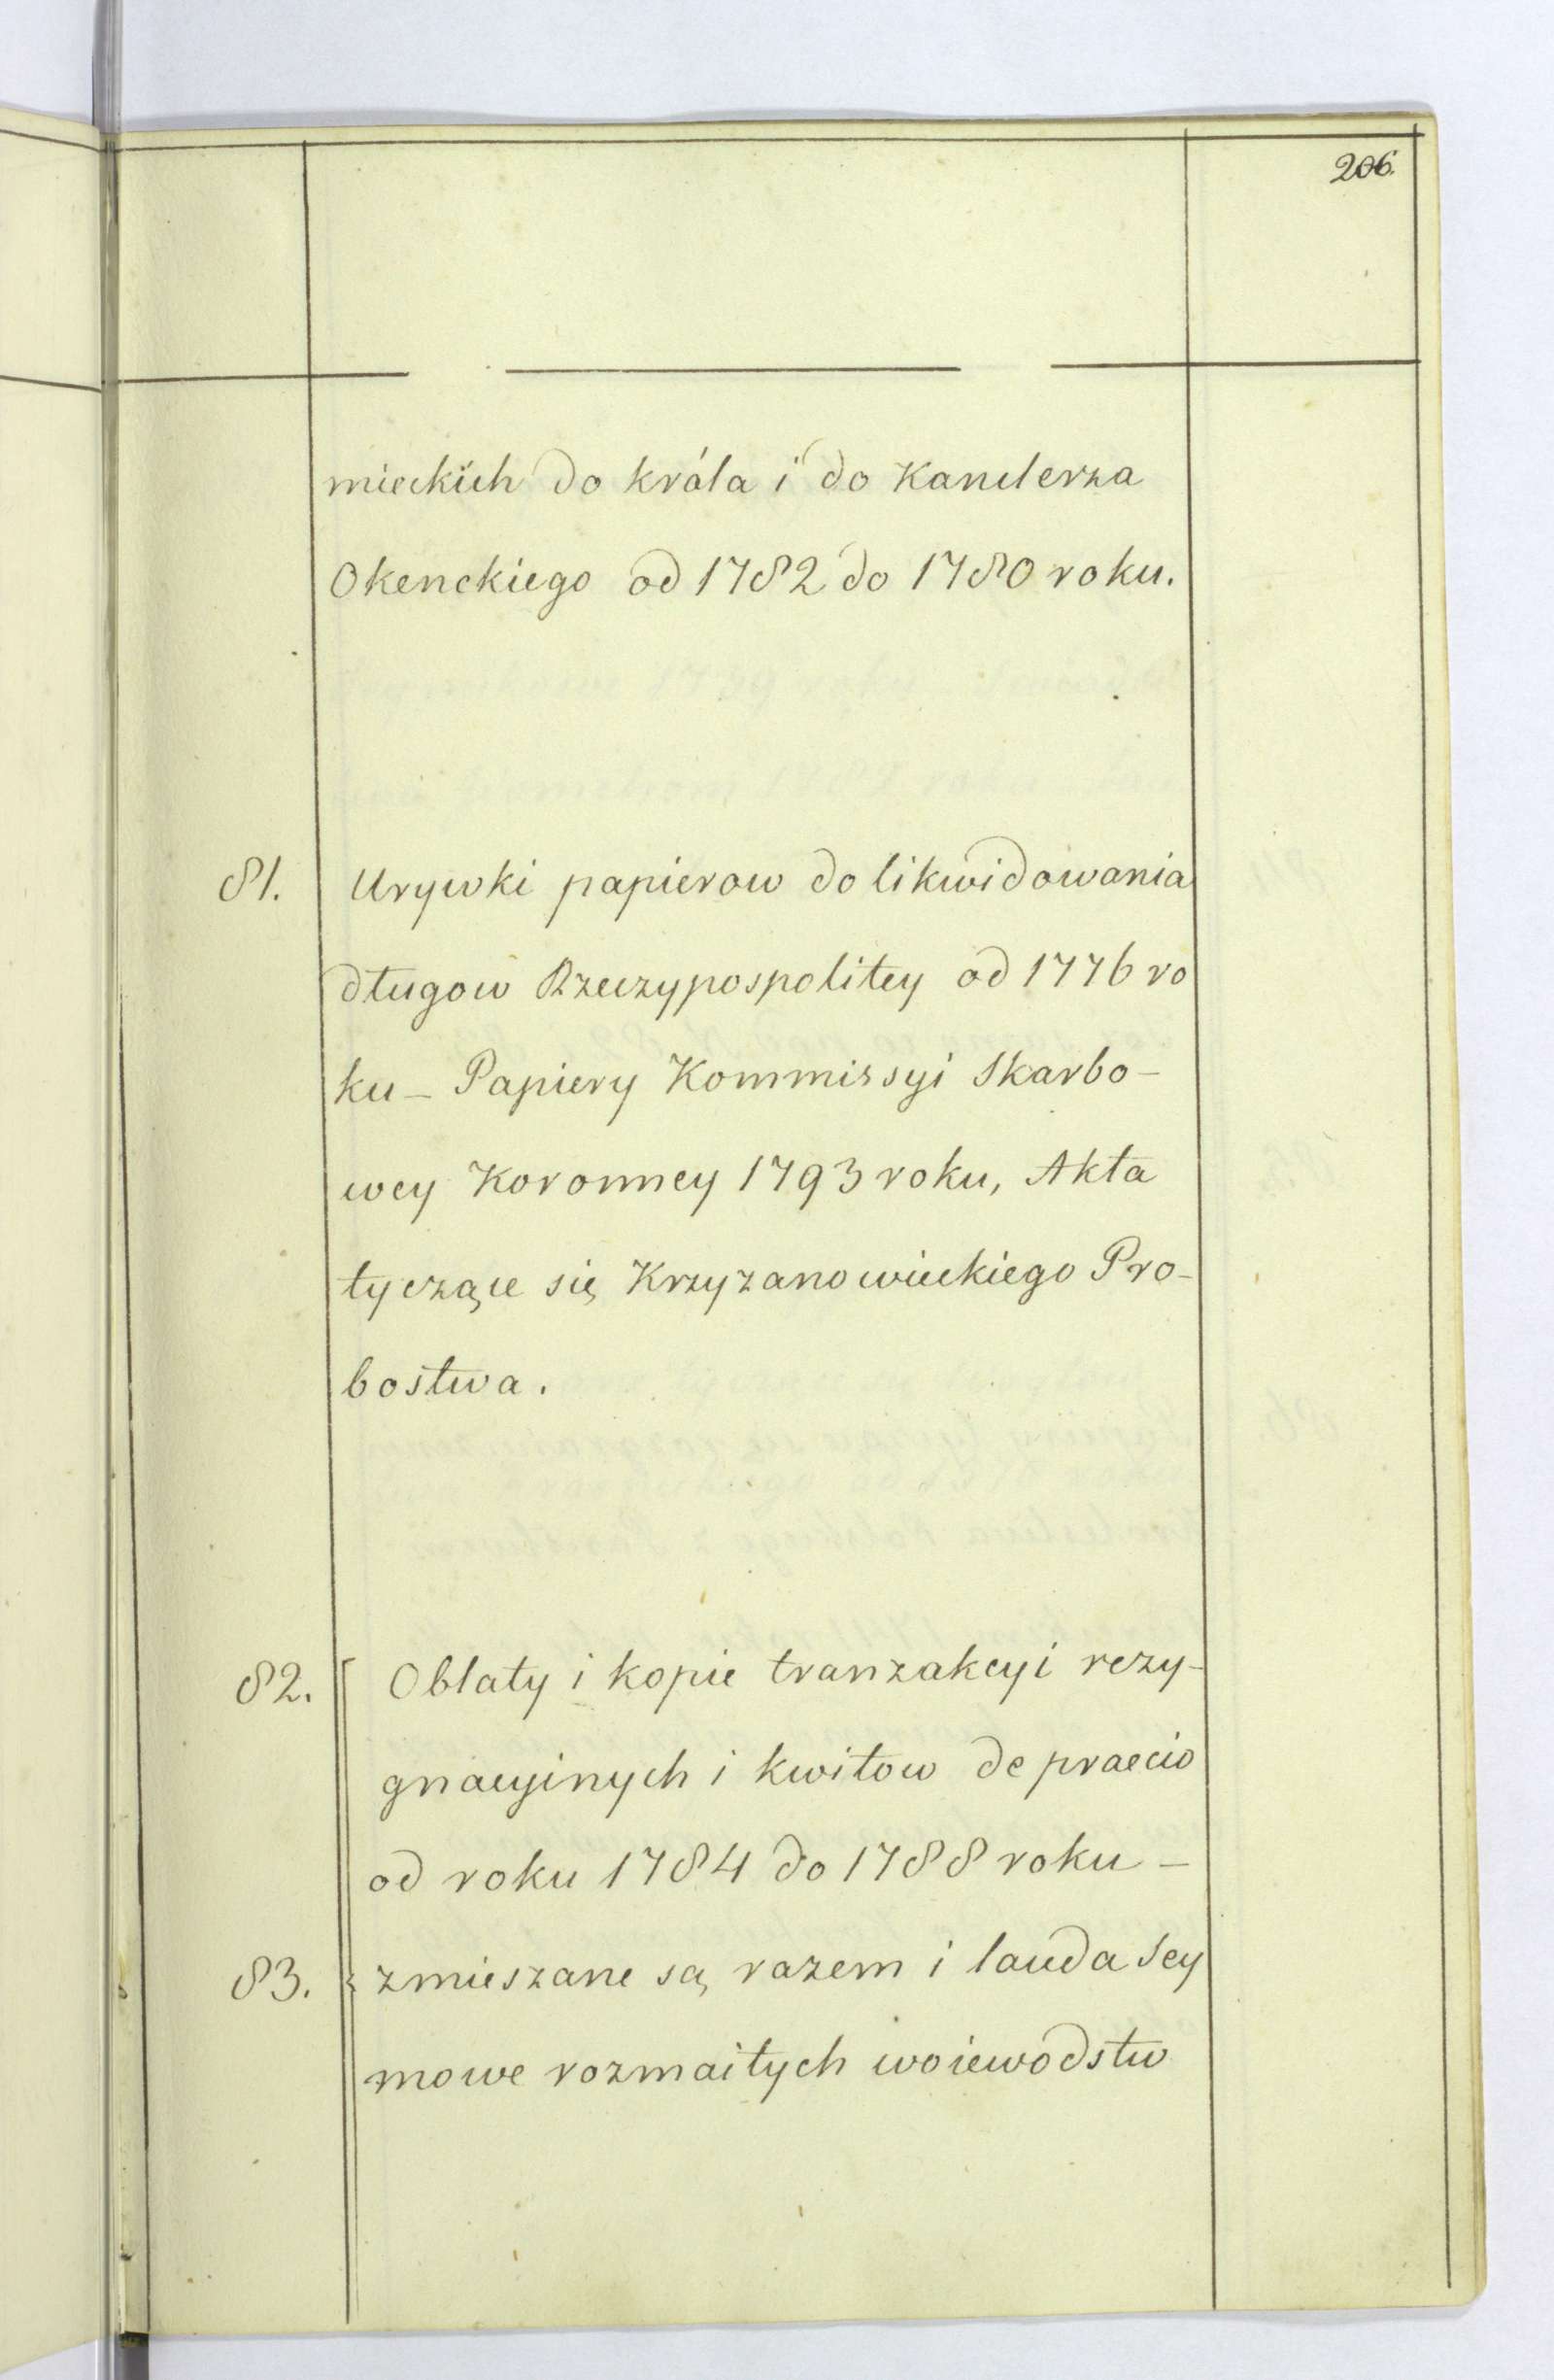 206.
mieckich do króla i do Kanclerza
Okenckiego od 1782 do 1780 roku.
81. Urywki papierow do likwidowania
długow Rzeczypospolitey od 1776 ro
ku – Papiery Kommissyi Skarbo-
wey Koronney 1793 roku, Akta
tyczące się Krzyzanowieckiego Pro-
bostwa.
82. Oblaty i kopie tranzakcyi rezy-
gnacyinych i kwitow de praecio
od roku 1784 do 1788 roku –
83. zmieszane są razem i lauda Sey
mowe rozmaitych woiewodstw